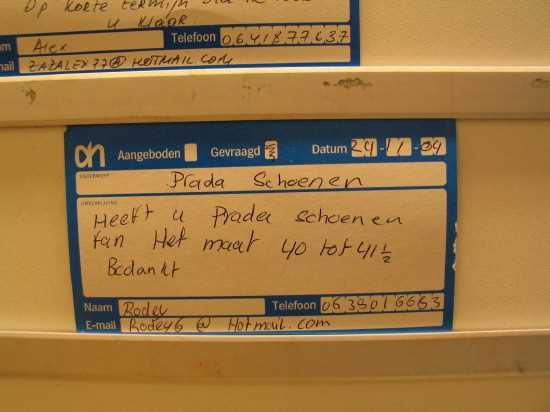 Op korte termijn
u klaar.
Alex
Telefoon 0641877637
mail ZAZALEX77@HOTMAIL.COM
ah Aangeboden Gevraagd Datum 24-11-09
ONDERWERP
Prada Schoenen
OMSCHRIJVING
Heeft u Prada schoenen
kan Het maat 40 tot 41 ½
Bedankt
Naam Rodey Telefoon 0638016663
E-mail Rodey6@Hotmail.com